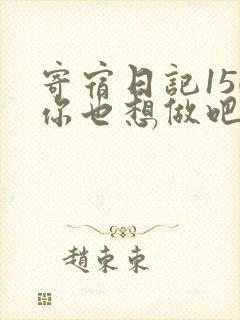 寄宿日記15
你也想做吧
趙束束